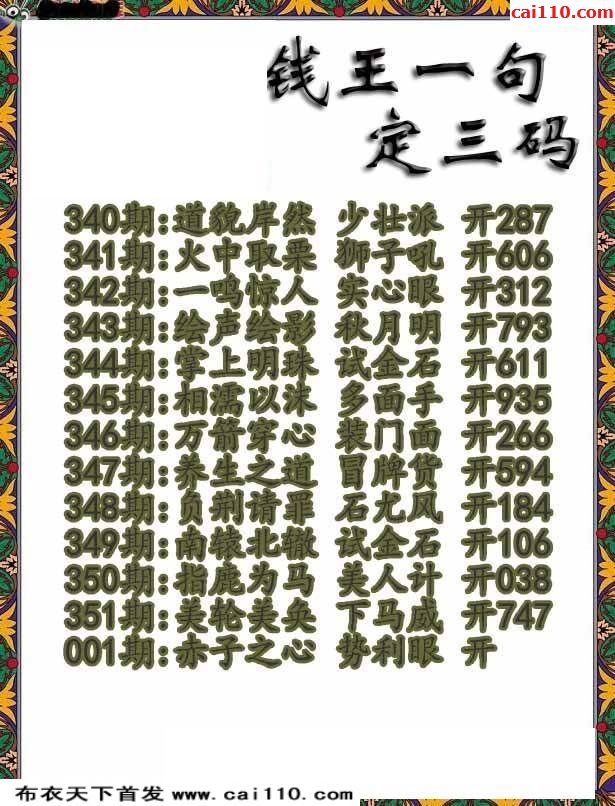 cai110.com
钱王一句
定三码
340期:道貌岸然 少壮派 开287
341期:火中取栗 狮子吼 开606
342期:一鸣惊人 实心眼 开312
343期:绘声绘影 秋月明 开793
344期:掌上明珠 试金石 开611
345期:相濡以沫 多面手 开935
346期:万箭穿心 装门面 开266
347期:养生之道 冒牌货 开594
348期:负荆请罪 石尤风 开184
349期:南辕北辙 试金石 开106
350期:指鹿为马 美人计 开038
351期:美轮美奂 下马威 开747
001期:赤子之心 势利眼 开
布衣天下首发 www.cai110.com